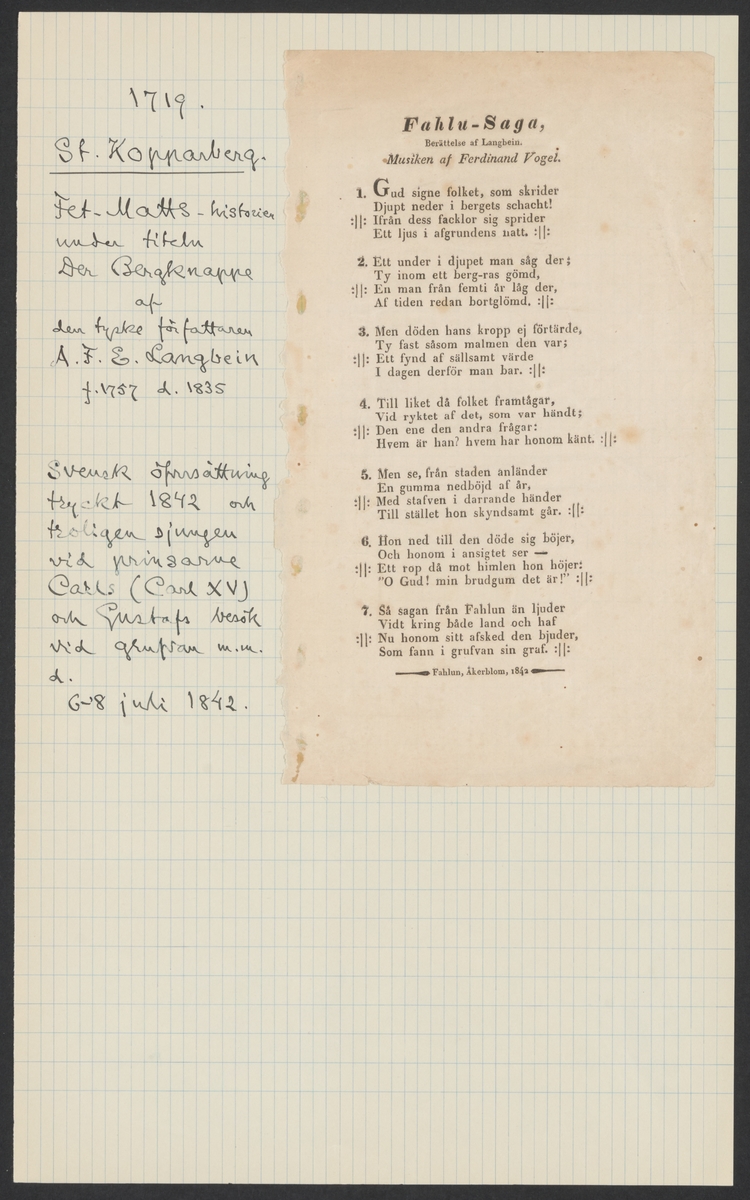 1719.
St. Kopparberg.
Fet-Matts-historien
under titeln
Der Bergknappe
af
den tyske författaren
A. F. E. Langbein
f. 1757 d. 1835
Svensk öfversättning
tryckt 1842 och
troligen sjungen
vid prinsarne
Carls (Carl XV)
och Gustafs besök
vid grufvan m.m.
d.
6-8 juli 1842.
Fahlu-Saga,
Berättelse af Langbein.
Musiken af Ferdinand Vogel.
1. Gud signe folket, som skrider
Djupt neder i bergets schacht!
:||: Ifrån dess facklor sig sprider
Ett ljus i afgrundens natt. :||:
2. Ett under i djupet man såg der;
Ty inom ett berg-ras gömd,
:||: En man från femti år låg der,
Af tiden redan bortglömd. :||:
3. Men döden hans kropp ej förtärde,
Ty fast såsom malmen den var;
:||: Ett fynd af sällsamt värde
I dagen derför man bar. :||:
4. Till liket då folket framtågar,
Vid ryktet af det, som var händt;
:||: Den ene den andra frågar:
Hvem är han? hvem har honom känt. :||:
5. Men se, från staden anländer
En gumma nedböjd af år,
:||: Med stafven i darrande händer
Till stället hon skyndsamt går. :||:
6. Hon ned till den döde sig böjer,
Och honom i ansigtet ser —
:||: Ett rop då mot himlen hon höjer:
"O Gud! min brudgum det är!" :||:
7. Så sagan från Fahlun än ljuder
Vidt kring både land och haf
:||: Nu honom sitt afsked den bjuder,
Som fann i grufvan sin graf. :||:
Fahlun, Åkerblom, 1842